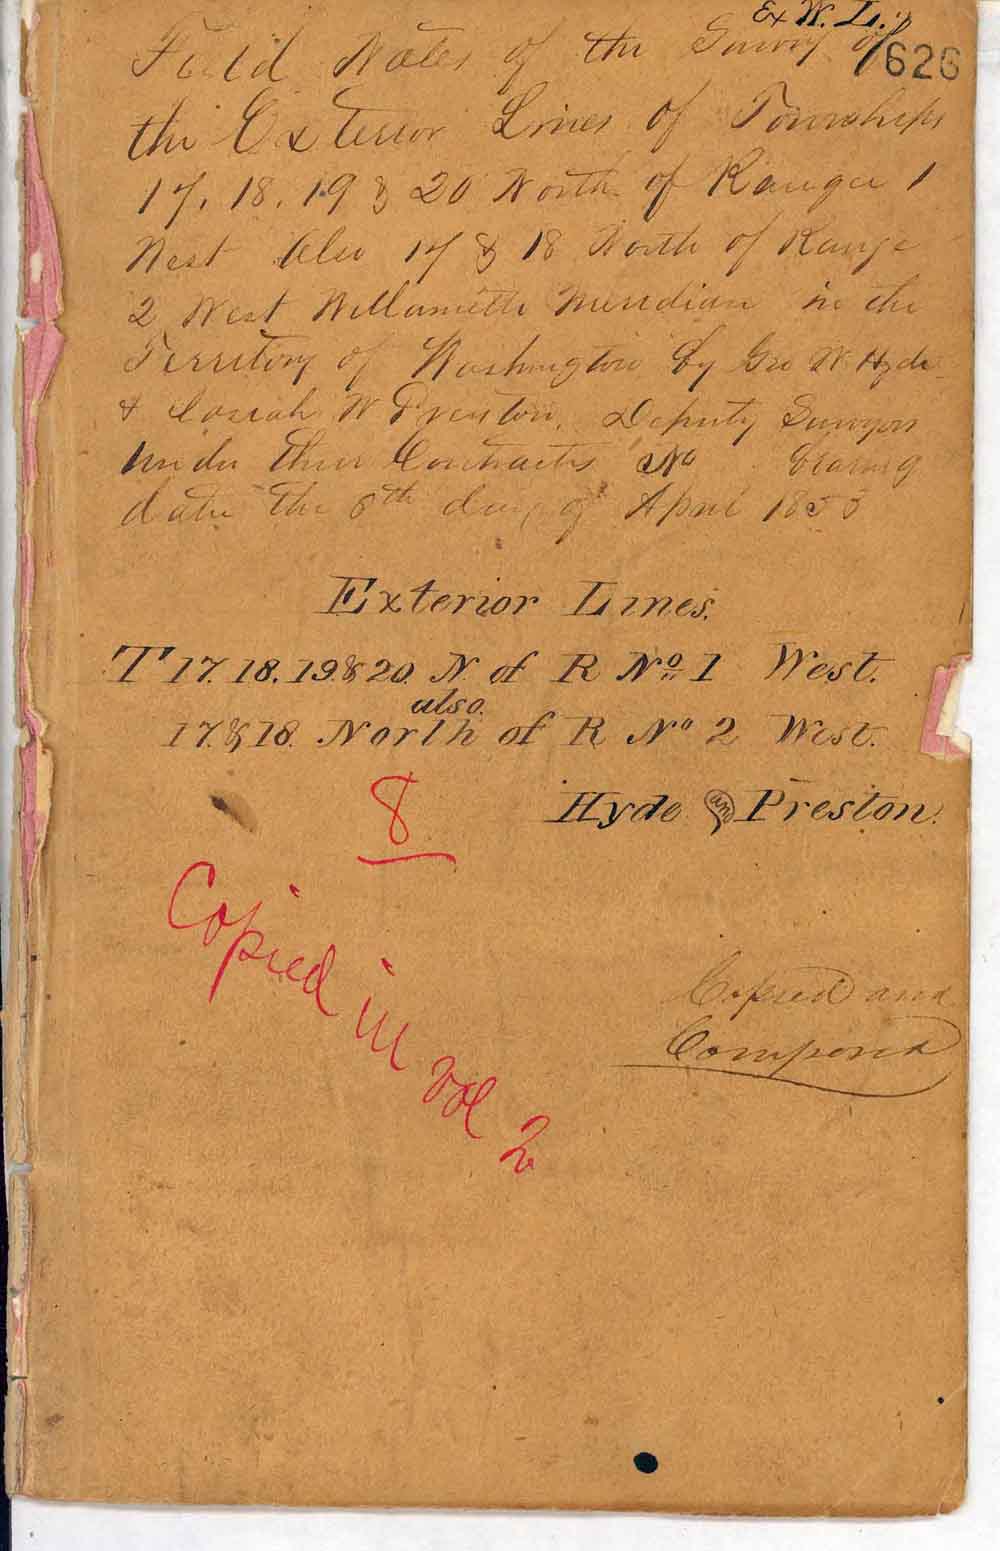 Ex W. L.
626
Field Notes of the Survey of
the Exterior Lines of Townships
17, 18, 19 & 20 North of Range 1
West Also 17 & 18 North of Range
2 West Willamette Meridian in the
Territory of Washington by Geo W. Hyde
& Josiah W Preston, Deputy Surveyors
Under their Contracts No bearing
date the 8th day of April 1853
Exterior Lines.
T 17. 18. 19. & 20. N. of R No. 1 West.
also.
17. & 18. North of R No 2 West.
Hyde and Preston.
8
Copied in vol 2
Copied and
Compared